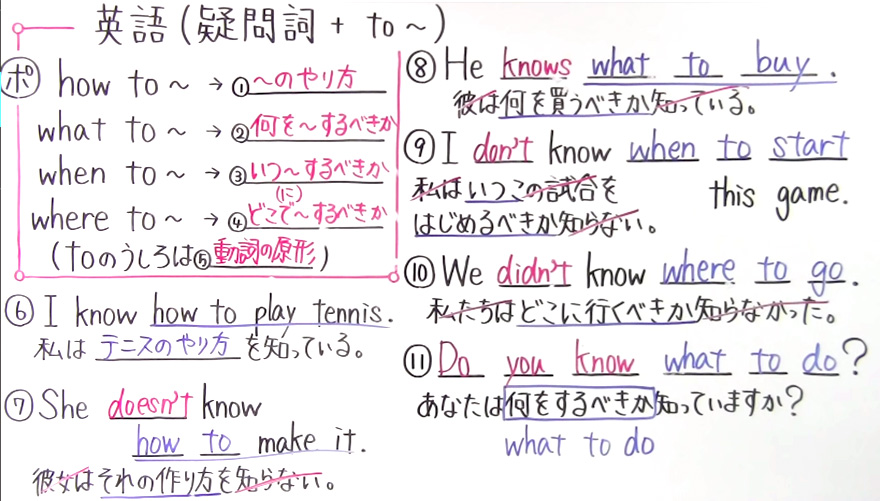 英語(疑問詞 + to ~)
ポ how to ~ → ①~のやり方
what to ~ → ②何を~するべきか
when to ~ → ③いつ~するべきか
(に)
where to ~ → ④どこで~するべきか
(toのうしろは⑤動詞の原形)
⑥ I know how to play tennis.
私は テニスのやり方 を知っている。
⑦ She doesn't know
how to make it.
彼女はそれの作り方を知らない。
⑧ He knows what to buy.
彼は何を買うべきか知っている。
⑨ I don't know when to start
this game.
私はいつこの試合を
はじめるべきか知らない。
⑩ We didn't know where to go.
私たちはどこに行くべきか知らなかった。
⑪ Do you know what to do?
あなたは何をするべきか知っていますか?
what to do